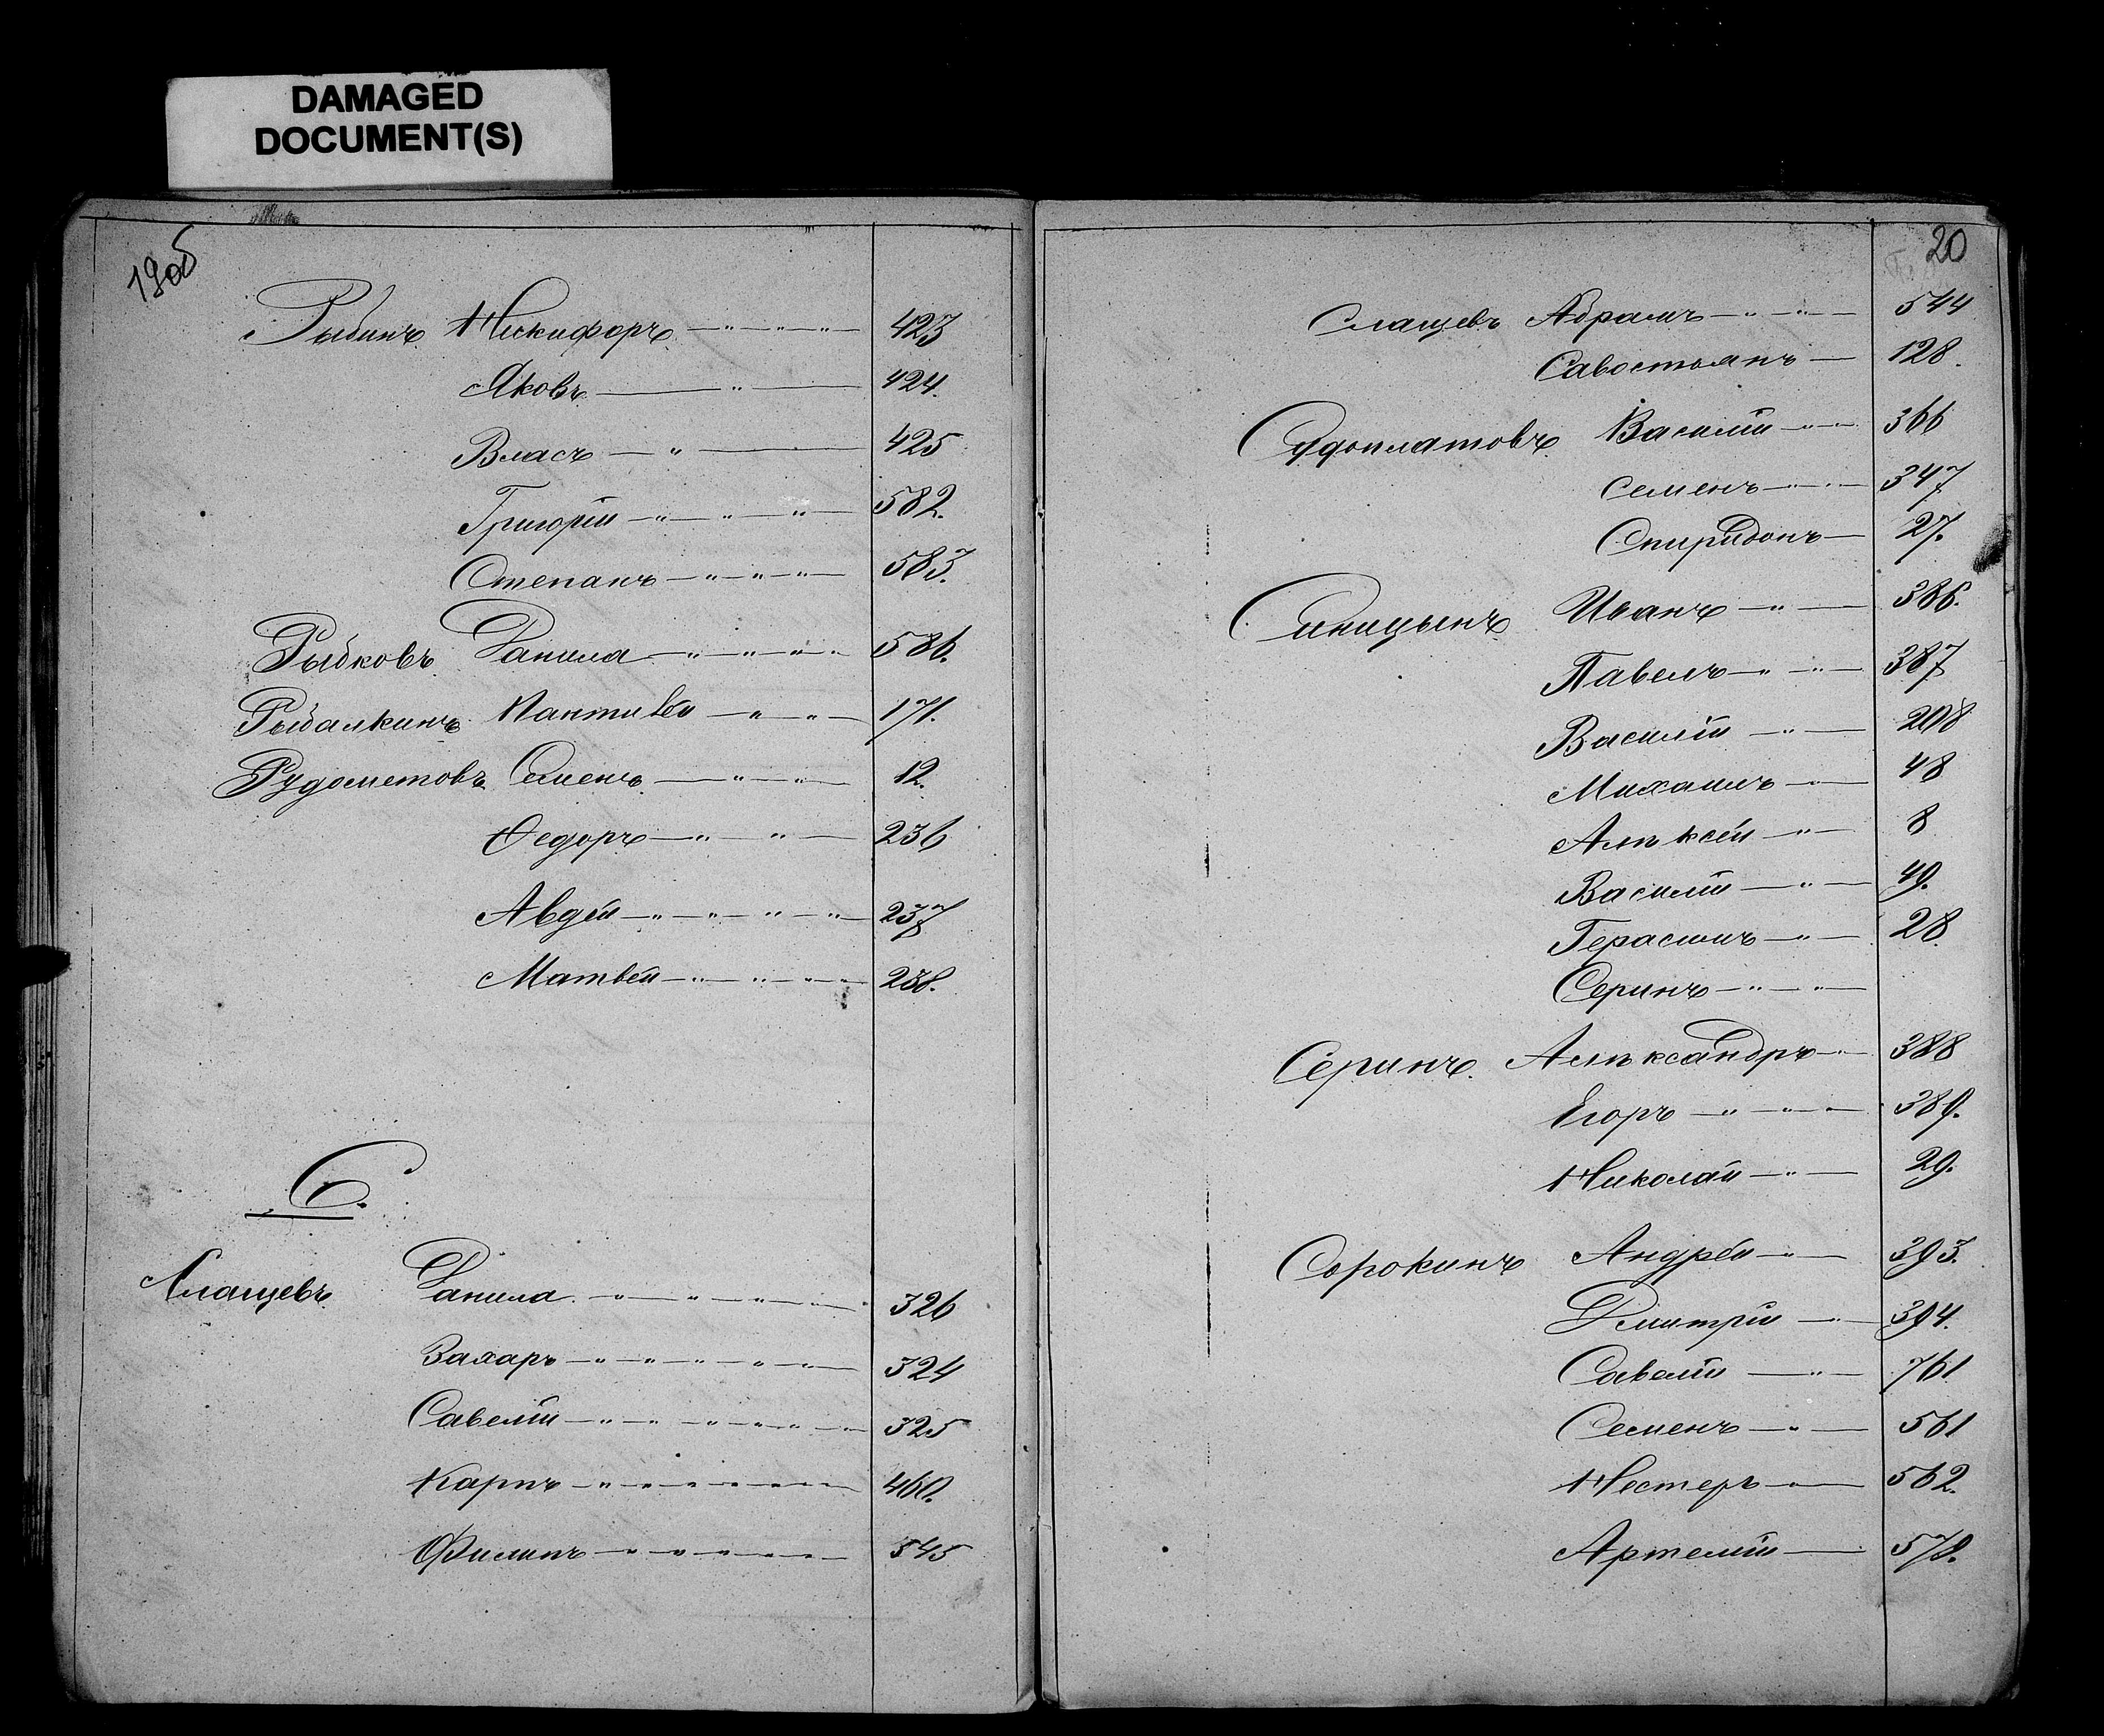 DAMAGED
DOCUMENT(S)
19об
Рыбинъ Никифоръ 423
Яковъ 424.
Власъ 425
Григорій 582.
Степанъ 583.
Рыбковъ Данила 586.
Рыбалкинъ Пантилѣй 171.
Рудометовъ Семенъ 12.
Ѳедоръ 236
Авдѣй 237
Матвѣй 238.
С.
Слащевъ Данила 326
Захаръ 324
Савелій 325
Карпъ 460.
Филипъ 545
20
Слащевъ Абрамъ 544
Савостьянъ 128.
Судоплатовъ Василій 366
Семенъ 347
Спиридонъ 27.
Синицынъ Иванъ 386.
Павелъ 387
Василій 208
Михаилъ 48
Алѣксѣй 8
Василій 49.
Герасимъ 28.
Серинъ
Серинъ Алѣксандръ 388
Егоръ 389.
Николай 29.
Сорокинъ Андрѣй 393.
Дмитрій 394.
Савелій 761
Семенъ 561
Нестеръ 562.
Артемій 578.